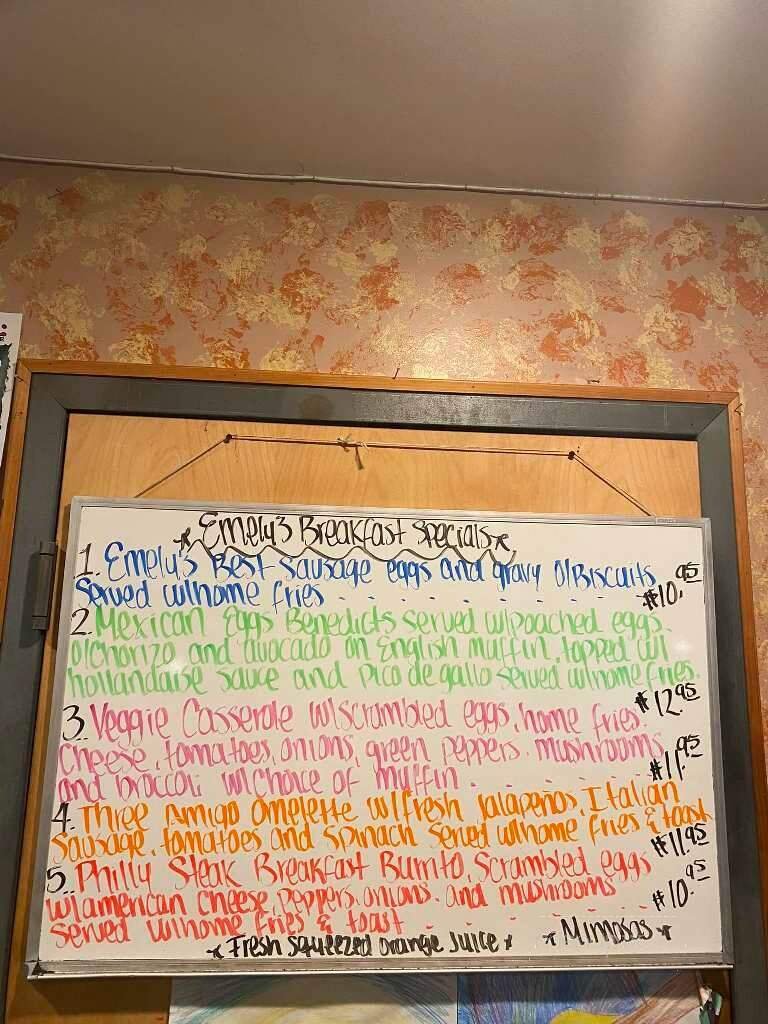 ★ Emely's Breakfast Specials ★
1. Emely's Best sausage eggs and gravy O/Biscuits
served w/home fries . . . . . . . $10.95
2. Mexican Eggs Benedicts served w/poached eggs
O/Chorizo and avocado on English muffin, topped w/
hollandaise sauce and Pico de gallo served w/home fries.
$12.95
3. Veggie Casserole w/scrambled eggs, home fries,
Cheese, tomatoes, onions, green peppers, mushrooms
and broccoli w/choice of muffin . . . . . . $11.95
4. Three Amigo Omelette w/fresh jalapeños, Italian
Sausage, tomatoes and spinach served w/home fries & toast
$11.95
5. Philly Steak Breakfast Burrito, Scrambled eggs
w/american cheese, peppers, onions, and mushrooms
served w/home fries & toast . . . . . . $10.95
★ Fresh squeezed orange juice ★ ★ Mimosas ★